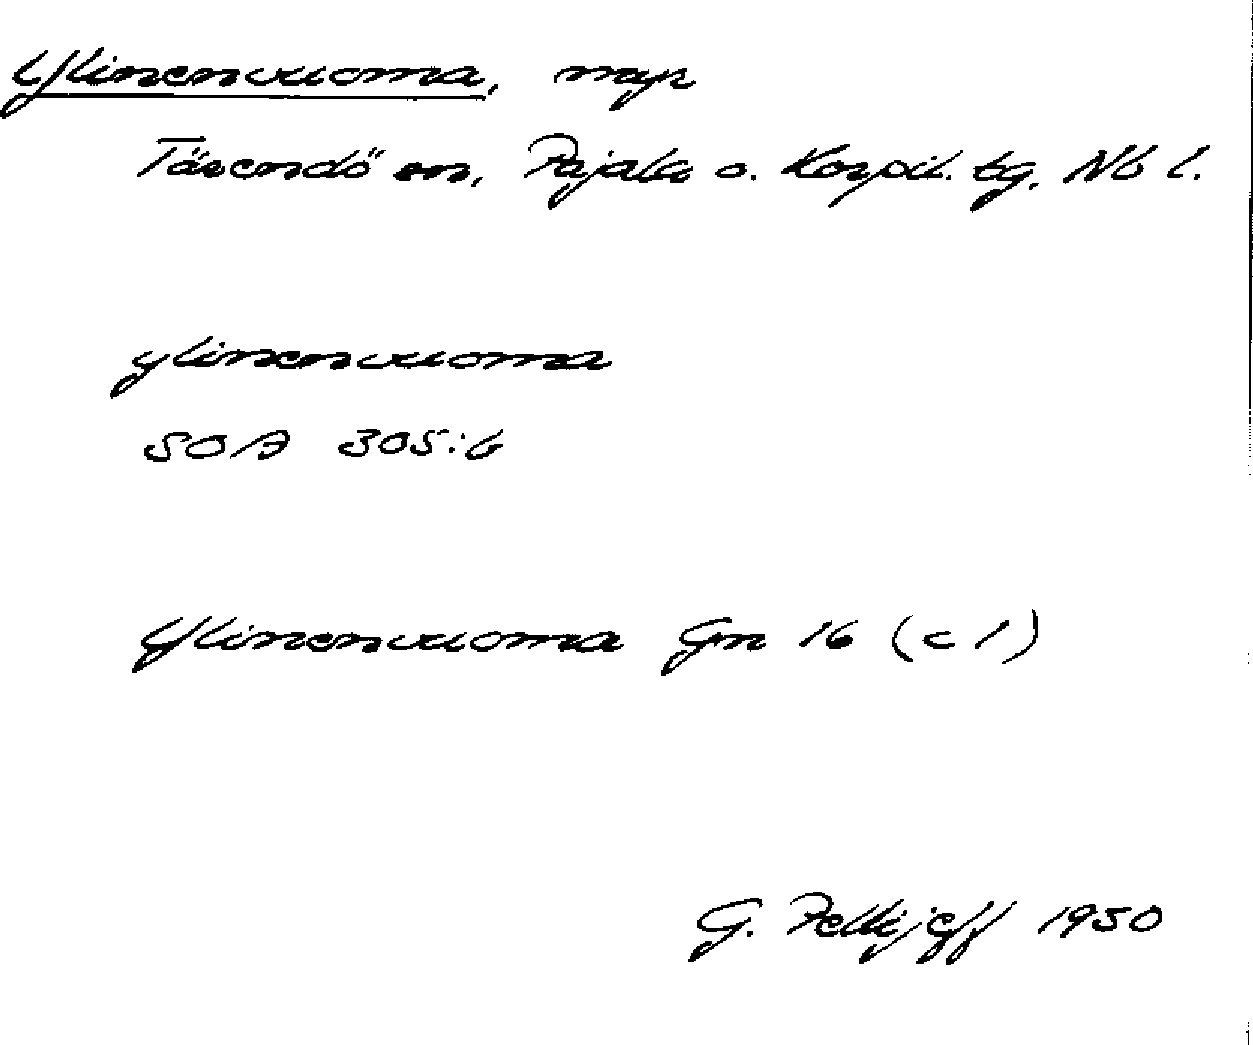 Ylinenvuoma, myr
Tärendö sn, Pajala o. Korpil. tg, Nb l.
ylinenvuoma
SOA 305:6
Ylinenvuoma Gn 16 (c 1)
G. Pellijeff 1950